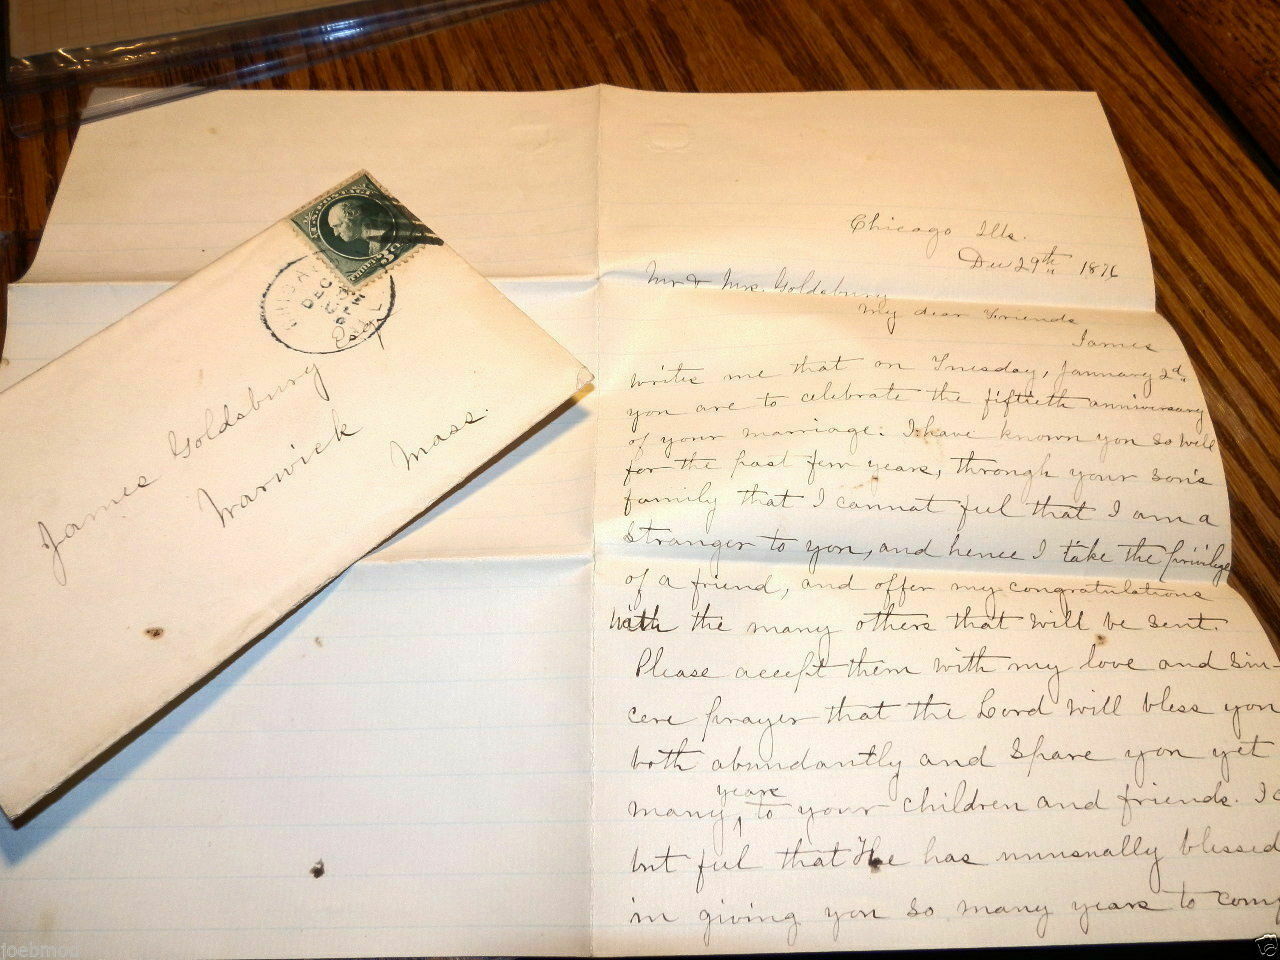 Chicago Ills.
Dec 29th 1876
Mr & Mrs. Goldsbury
My dear Friends
James
writes me that on Tuesday, January 2d.
you are to celebrate the fiftieth anniversary
of your marriage. I have known you so well
for the past few years, through your son's
family that I cannot feel that I am a
stranger to you, and hence I take the privilege
of a friend, and offer my congratulations
with the many others that will be sent.
Please accept them with my love and sin-
cere prayer that the Lord will bless you
both abundantly and spare you yet
many years, to your children and friends. I c
but feel that He has unusually blessed
in giving you so many years to comp
James Goldsbury Esq
Warwick
Mass.
CHICAGO
DEC
ILL
U.S. POSTAGE
joebmod